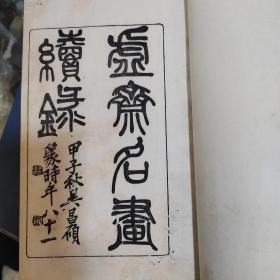 虚齋名畫
續錄
甲子秋吳昌碩
篆時年八十一